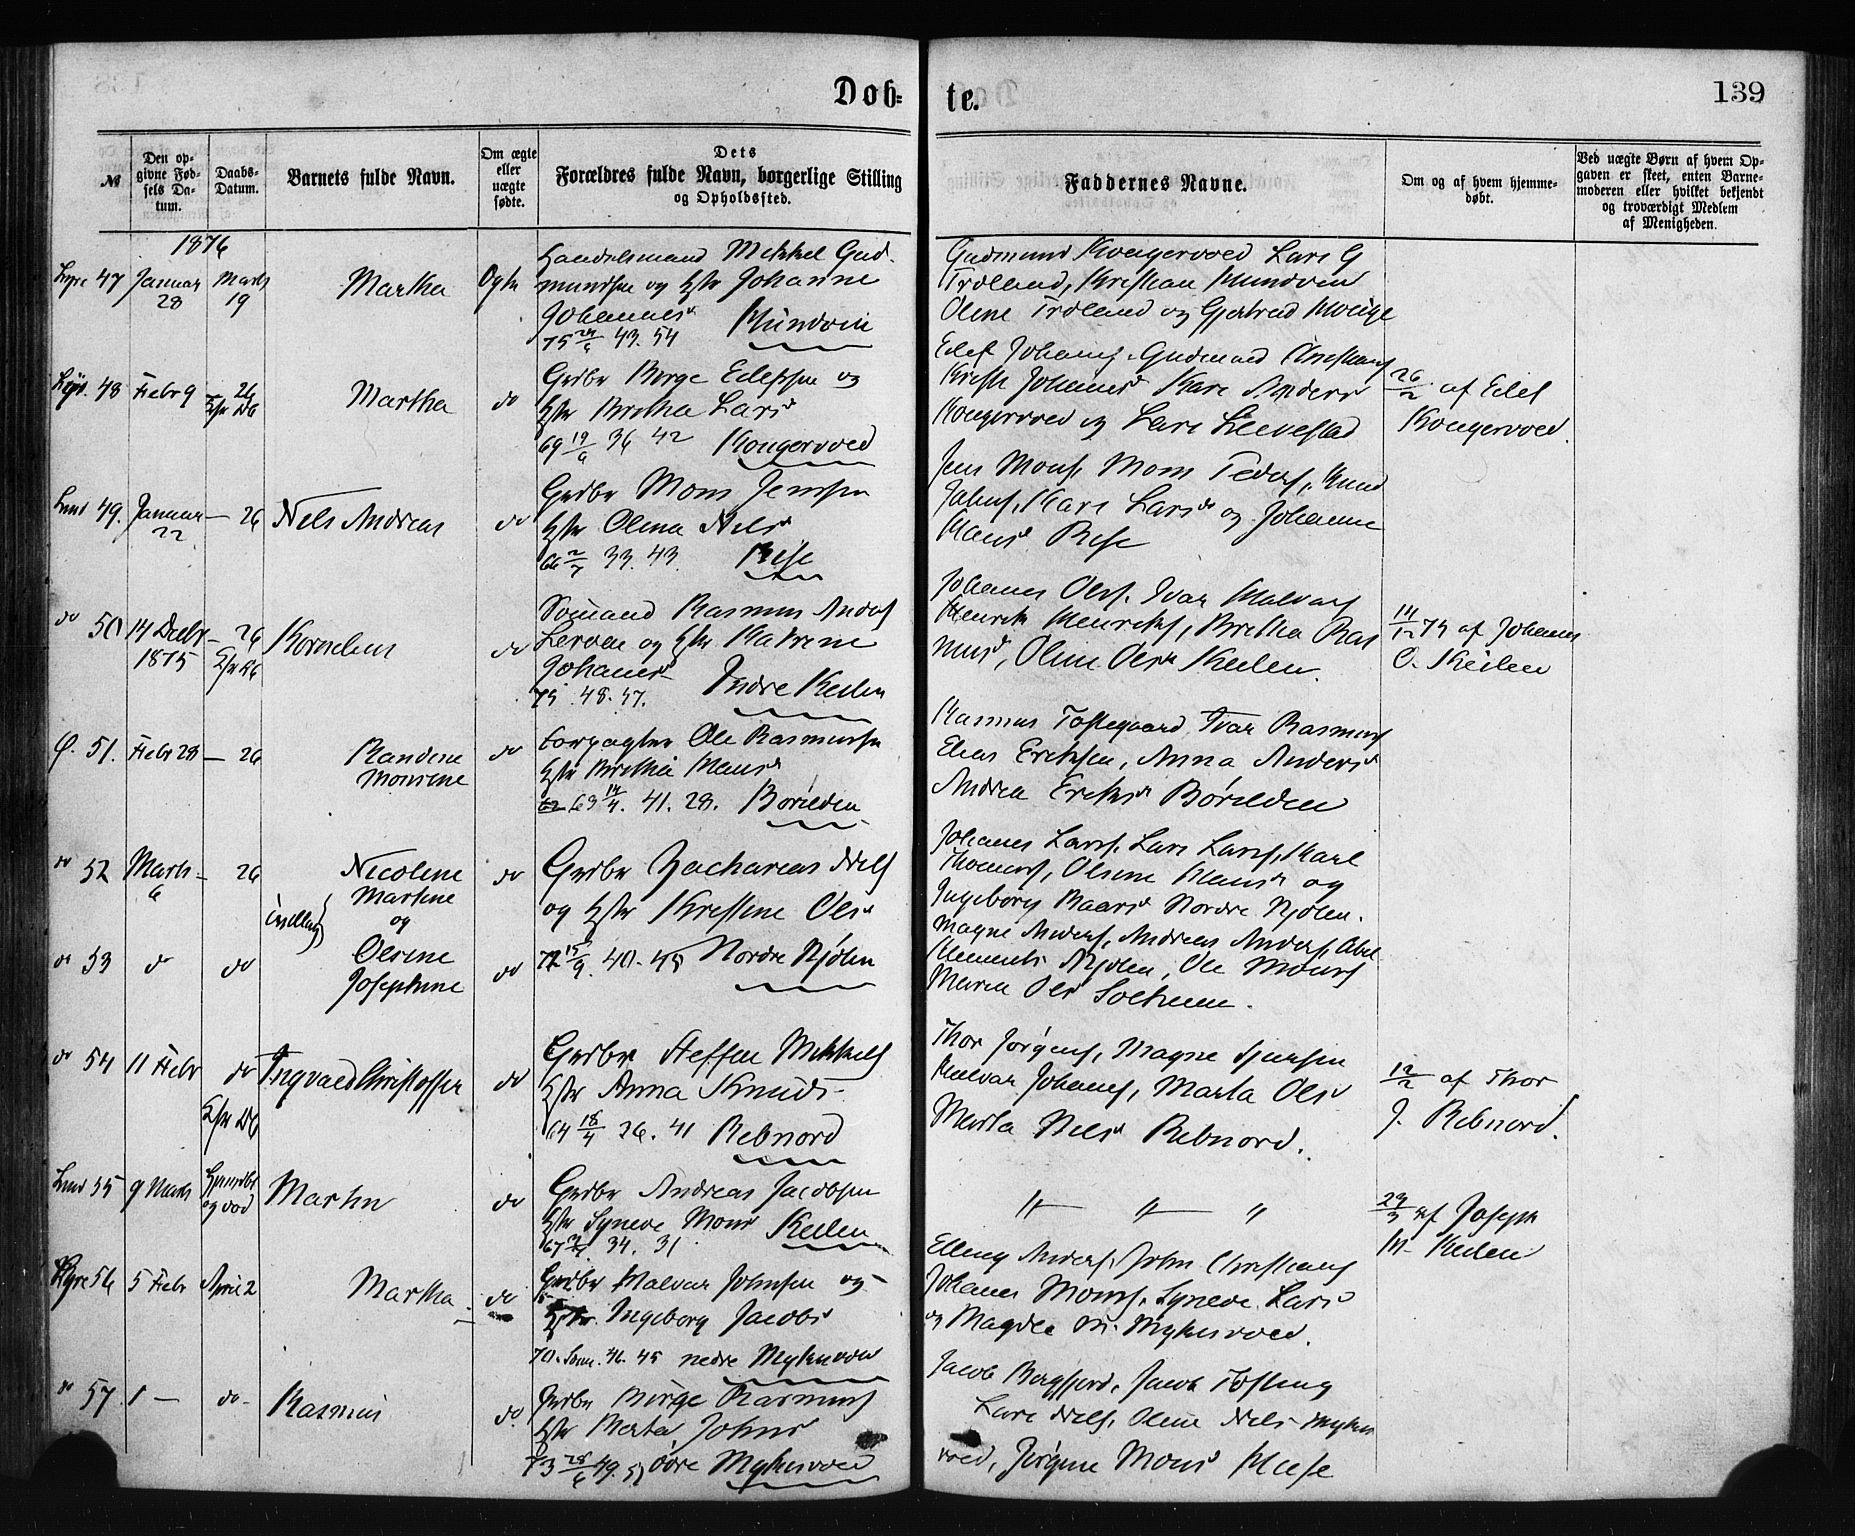 Døb-
te.
139
№
Den op-
givne Fød-
sels Da-
tum.
Daabs-
Datum.
Barnets fulde Navn.
Om ægte
eller
uægte
fødte.
Dets
Forældres fulde Navn, borgerlige Stilling
og Opholdssted.
Faddernes Navne.
Om og af hvem hjemme-
døbt.
Ved uægte Børn af hvem Op-
gaven er skeet, enten Barne-
moderen eller hvilket bekjendt
og troværdigt Medlem
af Menigheden.
1876
47 Januar 28
Marts 19
Martha
Ægte
Handelsmand Mikkel Gud-
mundsen og Hstr Johanne
Johannesd
75 43. 54 Mundvin
Gudmund Kongervoed Lars G
Troland, Kristian Mundvin
Olene Troland og Gjertrud
48 Febr 9
26
Martha
do
Grdbr Børge Edefsen og
Hstr Britha Larsd
69 19/6 36 42 Kongervoed
Kristi Johannesd Kari Andersd
Kongervoed og Lars
26/2 af Edef
Kongervoed.
Lund 49. Januar 22
— 26
Nels Andreas
do
Grdbr Mons Jensen
Hstr Olina Nelsd
66 2/7 33. 43. Risе
Jens Mons, Mons Peders, Knud
Johns, Kari Larsd og Johanne
Hansd Rise
do 50 14 Decbr 1875
— 26
Kornelius
do
Sømand Rasmus Anders
Lervåg og Hstr Katrine
Johannesd
75. 48. 57. Indre Keilen
Johannes Ols. Ivar Halvars
Henrik Henriks, Britha Ras
musd, Oline Olsd Keilen.
14/12 75 af Johannes
O. Keilen
51. Febr 28
— 26
Randine
Monsine
do
Forpagter Ole Rasmussen
Hstr Brithe Hansd
63 14/4. 41. 28. Børilden
Rasmus Toftegaard Ivar Rasmuss
Elias Eriksen, Anna Andersd
Andrea Eriksd Børilden
do 52 Marts 6
— 26
Nicoline
Martine
og
do
Grdbr Zacharias Nels
og Hstr Kristine Olsd
72 15/9. 40. 45 Nordre Njølen
Johannes Larss. Lars Larss, Karl
Thomass, Olsine Hansd og
Ingeborg Baarsd Nordre Njølen.
do 53 do
do
Tvilling
Olsine
Josephine
do
Magne Anders, Andreas Anders, Abel
Klements Njølen, Ole Mons
Maren Olsd Solheim.
do 54 11 Febr
do
Ingvald Christoffer
do
Grdbr Steffen Mikkels
Hstr Anna Knuds
64 18/4 36. 41 Rebnord
Thor Jørgens, Magne
Halvar Johans, Marta Olsd
Marta Nelsd Rebnord.
12/2 af Thor
J. Rebnord.
Lund 55 9 Marts
Hjemdbt
og død
Martin
do
Grdbr Andreas Jacobsen
Hstr Syneve Monsd Keilen
67 34. 31
〃 〃 〃
29/3 af Joseph
M. Keilen
56 5 Febr
April 2
Martha
do
Grdbr Halvar Johnsen og
Hstr. Ingeborg Jacobsd
70. 46. 45 nedre Mykinvoed
Elling Anders, John Christians
Johannes Mons, Syneve Larsd
og Magdla Mykinvoed.
do 57 1 —
do
Rasmus
do.
Grdbr Børge Rasmuss
Hstr Marta Johnsd
73 28/6 49. 51 øvre Mykinvoed
Jacob Bergfjord, Jacob
Lars Nels, Oline Nelsd Mykin
voed, Jørgine Monsd